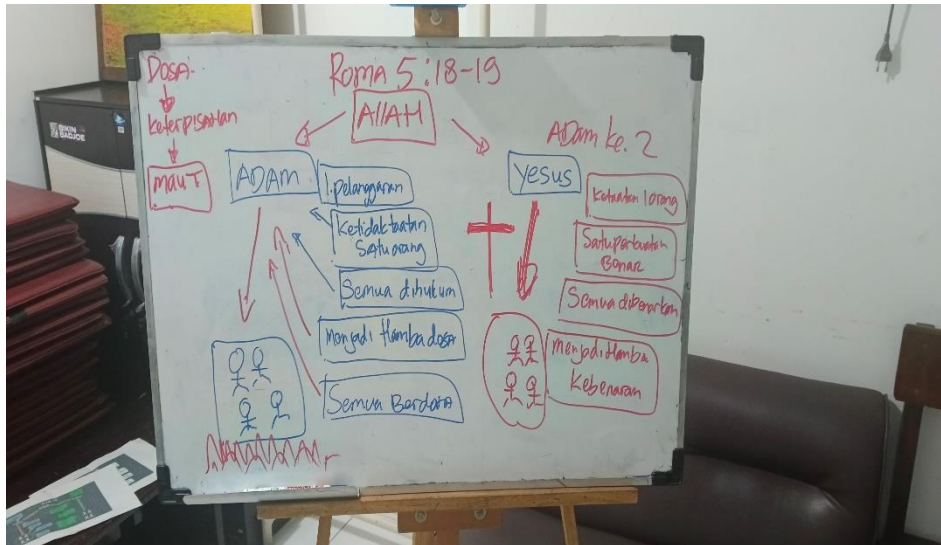 DOSA
keterpisahan
MAUT
Roma 5:18-19
AllAH
ADAM
1. pelanggaran
Ketidaktaatan
Satu orang
Semua dihukum
Menjadi Hamba dosa
Semua Berdosa
Adam ke. 2
Yesus
Ketaatan 1 orang
Satu perbuatan
Benar
Semua dibenarkan
Menjadi Hamba
Kebenaran
BIKIN